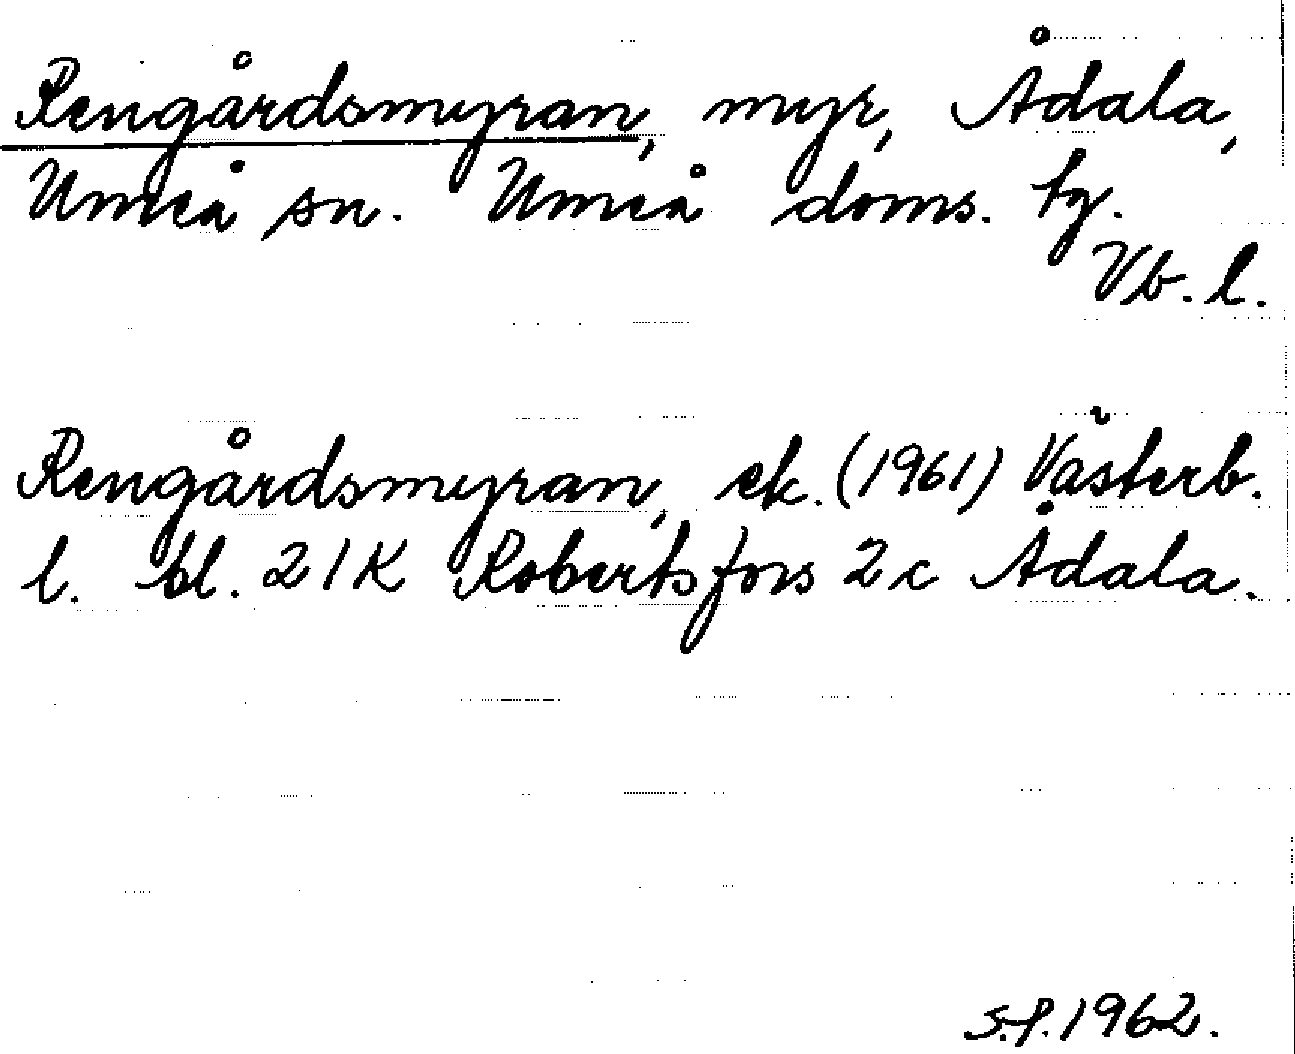 Rengårdsmyran, myr, Ådala,
Umeå sn. Umeå doms. tg.
Vb. l.
Rengårdsmyran, ek. (1961) Västerb.
l. bl. 21K Robertsfors 2c Ådala.
S.f. 1962.